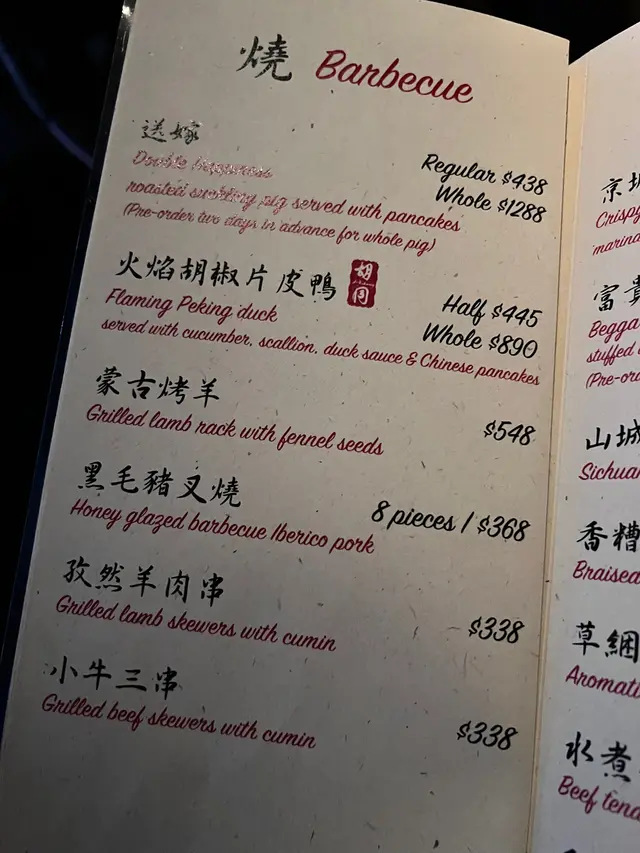 燒 Barbecue
送嫁
Double happiness
roasted suckling pig served with pancakes
(Pre-order two days in advance for whole pig)
Regular $438
Whole $1288
火焰胡椒片皮鴨
胡同
Flaming Peking duck
served with cucumber, scallion, duck sauce & Chinese pancakes
Half $445
Whole $890
蒙古烤羊
Grilled lamb rack with fennel seeds
$548
黑毛豬叉燒
Honey glazed barbecue Iberico pork
8 pieces / $368
孜然羊肉串
Grilled lamb skewers with cumin
$338
小牛三串
Grilled beef skewers with cumin
$338
京
Crispy
marina
富貴
Begga
stuffed
(Pre-ord
山城
Sichua
香糟
Braised
草綑
Aromati
水煮
Beef tend